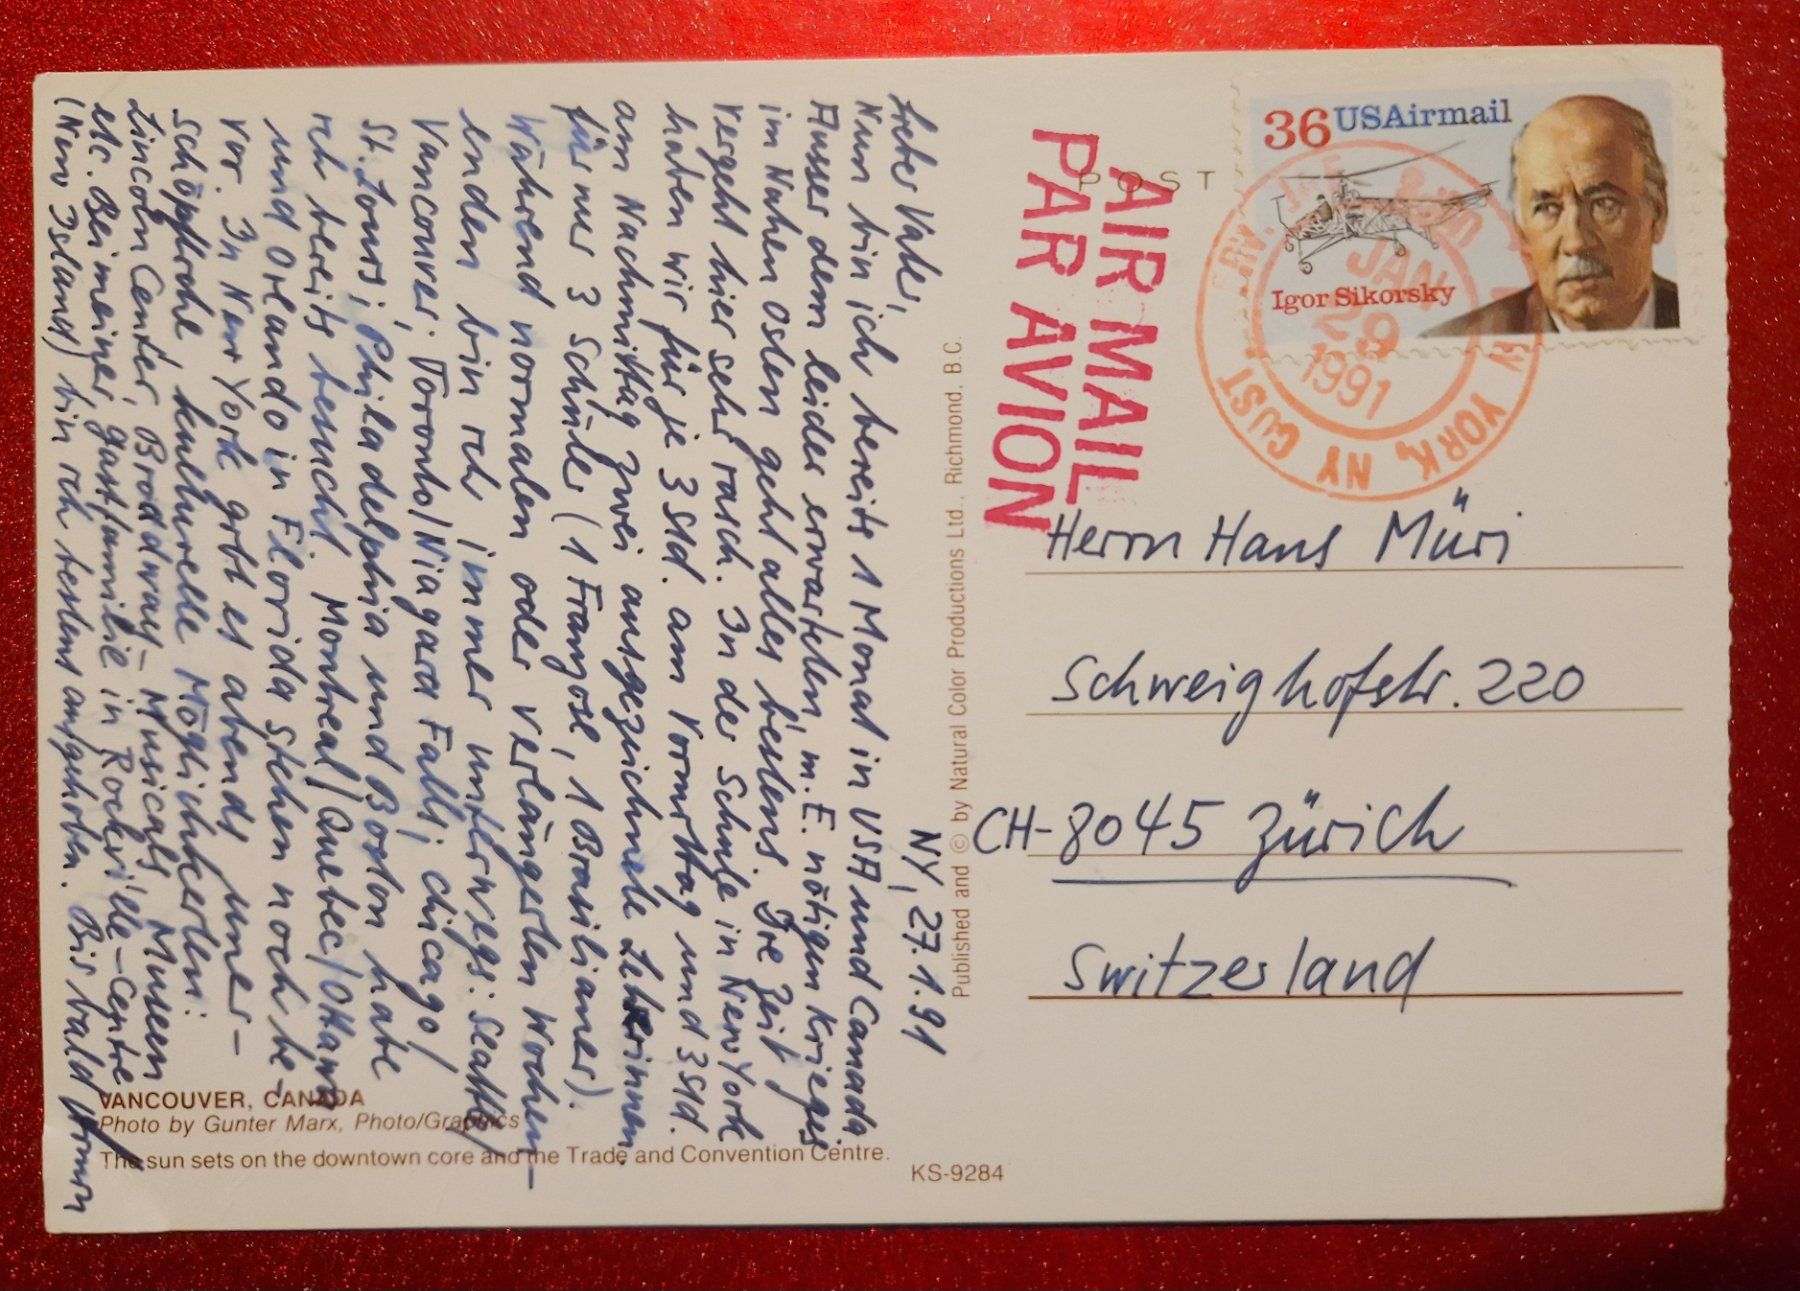 NY, 27.1.91
Lieber Vater,
Nun bin ich bereits 1 Monat in USA und Canada
Ausser dem leider erwarteten, m.E. nötigen Krieges
im Nahen Osten geht alles bestens. Die Zeit
vergeht hier sehr rasch. In der Schule in New York
haben wir für je 3 Std. am Vormittag und 3 Std.
am Nachmittag zwei ausgezeichnete Lehrerinnen
für nur 3 Schüler (1 Franzose, 1 Brasilianer).
Während normalen oder verlängerten Wochen-
enden bin ich immer unterwegs: Seattle/
Vancouver; Toronto/Niagara Falls; Chicago/
St. Louis; Philadelphia und Boston habe
ich bereits besucht. Montreal/Quebec/Ottawa
und Orlando in Florida stehen noch be-
vor. In New York gibt es abends uner-
schöpfliche, kulturelle Möglichkeiten:
Lincoln Center, Broadway-Musicals, Museen
etc. Bei meiner Gastfamilie in Rockville-Centre
(New Island) bin ich bestens aufgehoben. Bis bald
VANCOUVER, CANADA
Photo by Gunter Marx, Photo/Graphics
The sun sets on the downtown core and the Trade and Convention Centre.
KS-9284
Published and © by Natural Color Productions Ltd., Richmond. B.C.
POST
AIR MAIL
PAR AVION
36 USAirmail
Igor Sikorsky
JAN
29
1991
YORK, NY
Herrn Hans Müri
Schweighofstr. 220
CH-8045 Zürich
Switzerland